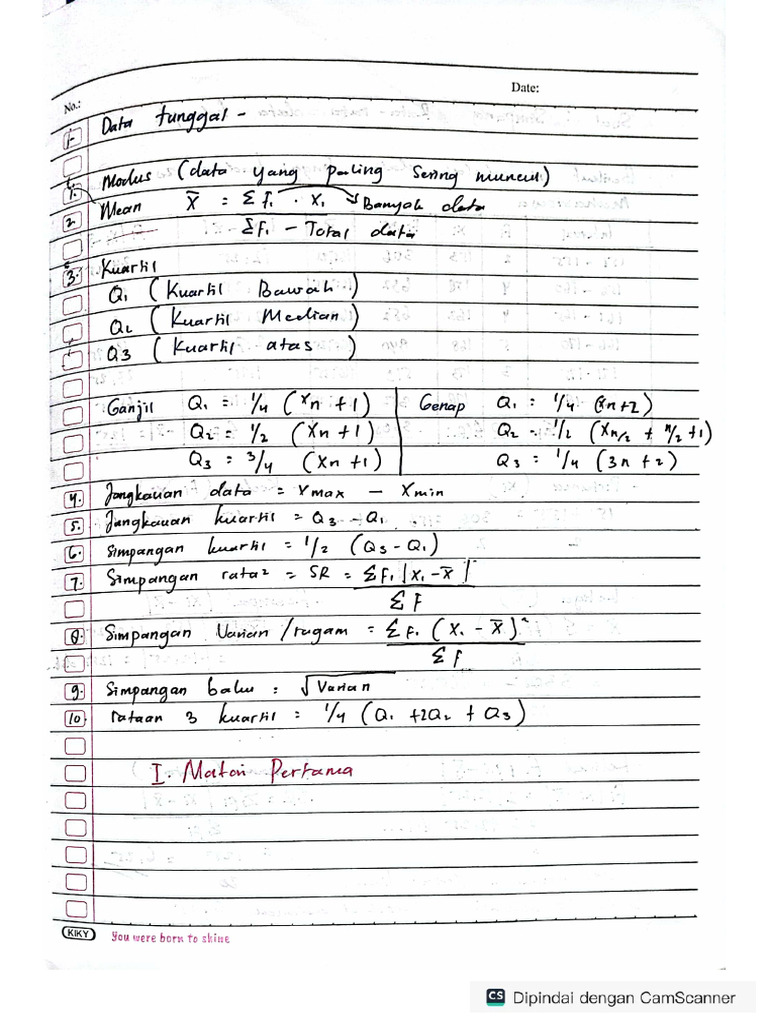 Date:
No.:
1- Data tunggal -
1. Modus (data yang paling sering muncul)
2. Mean X̄ = Σ F₁ . X₁ → Banyak data
ΣF₁ - Total data
3. Kuartil
Q₁ (Kuartil Bawah)
Q₂ (Kuartil Median)
Q3 (Kuartil atas)
Ganjil Q₁ = 1/4 (Xn + 1) | Genap Q₁ = 1/4 (Xn+2)
Q₂ = 1/2 (Xn + 1) Q₂ = 1/2 (Xn/2 + n/2 + 1)
Q3 = 3/4 (Xn + 1) Q3 = 1/4 (3n + 2)
4. Jangkauan data = Xmax - Xmin
5. Jangkauan kuartil = Q3 - Q₁
6. Simpangan kuartil = 1/2 (Q3 - Q₁)
7. Simpangan rata² = SR = ΣF₁ |X₁ - X̄|
ΣF
8. Simpangan Varian/ragam = ΣF₁ (X₁ - X̄)²
ΣF
9. Simpangan baku = √Varian
10. rataan 3 kuartil = 1/4 (Q₁ + 2Q₂ + Q3)
I. Materi Pertama
KIKY You were born to shine
CS Dipindai dengan CamScanner